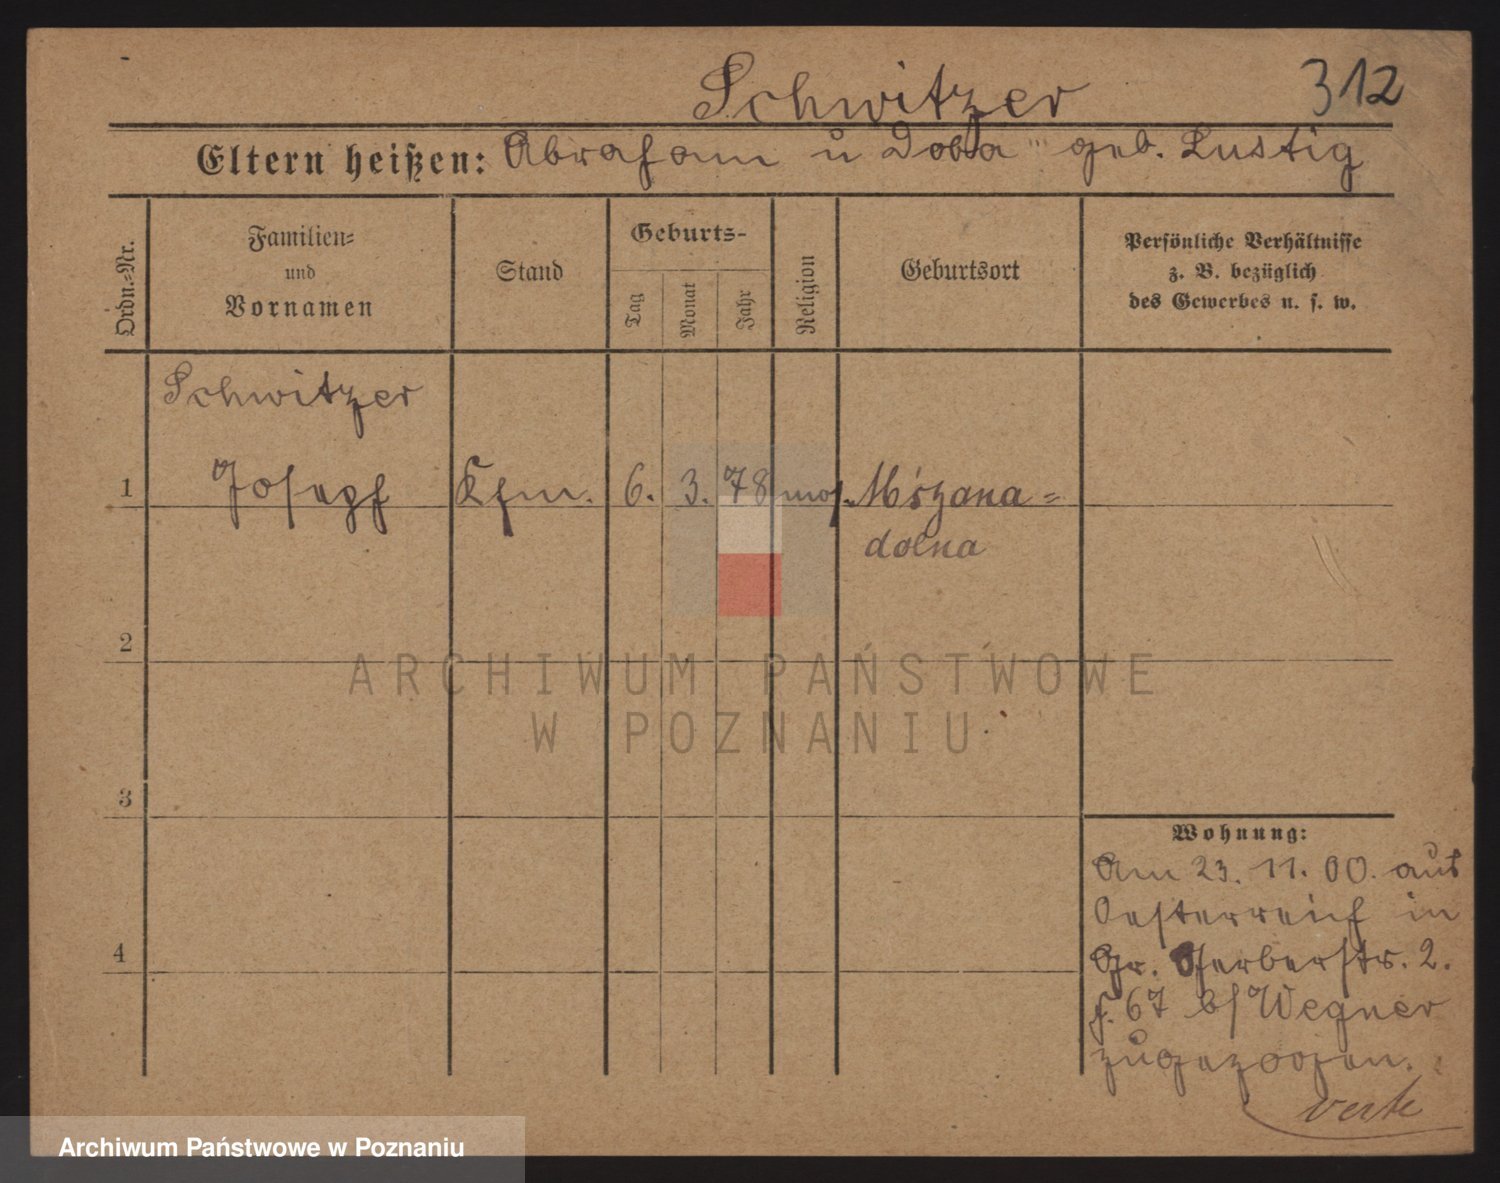 Schwitzer 312
Eltern heißen: Abraham u Doba geb. Lustig
Ordn.=Nr.
Familien=
und
Vornamen
Stand
Geburts-
Tag
Monat
Jahr
Religion
Geburtsort
Persönliche Verhältnisse
z. B. bezüglich
des Gewerbes u. s. w.
Schwitzer
1 Joseph Kfm. 6. 3. 78 mos. Mszana=
dolna
2
ARCHIWUM PAŃSTWOWE
W POZNANIU
3
Wohnung:
Am 23. 11. 00. aus
Oesterreich in
4
Gr. Gerberstr. 2.
67 b/ Wegner
zugezogen.
verte
Archiwum Państwowe w Poznaniu